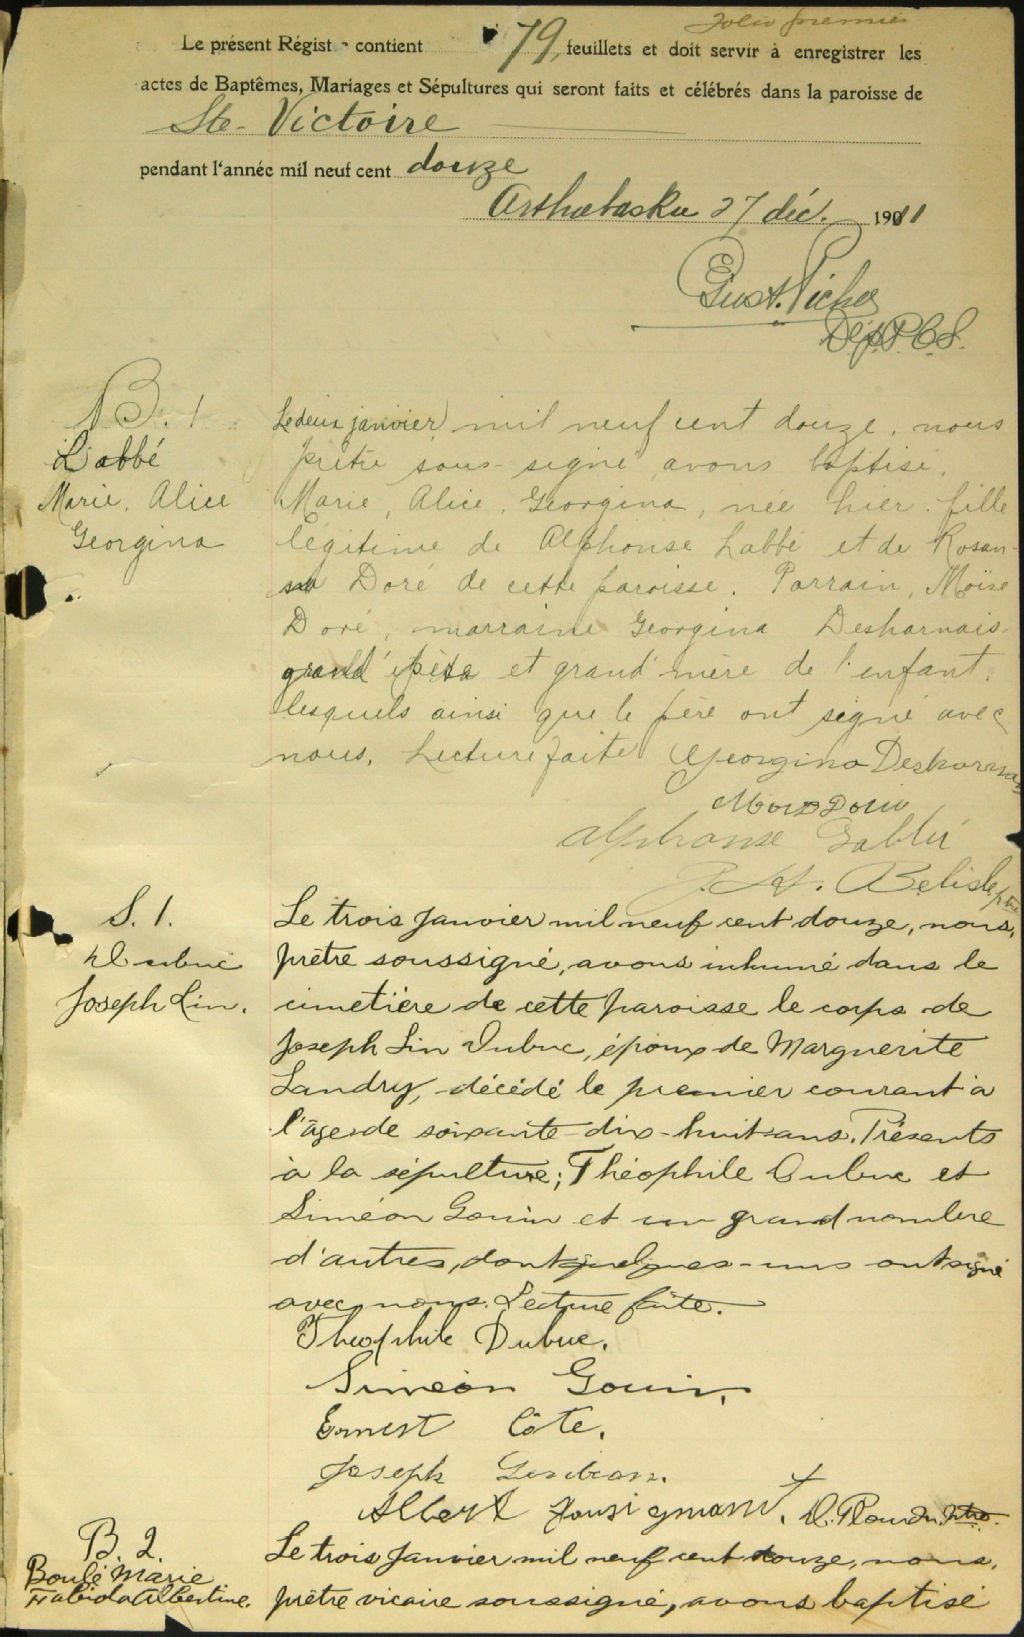 Folio premier
Le présent Régist contient 79 feuillets et doit servir à enregistrer les
actes de Baptêmes, Mariages et Sépultures qui seront faits et célébrés dans la paroisse de
Ste-Victoire
pendant l'année mil neuf cent douze
Arthabaska 27 déc. 1911
Gust. Picher
Dép. P.C.S.
B. 1
Labbé
Marie, Alice
Georgina
Le deux janvier mil neuf cent douze, nous
prêtre sous-signé avons baptisé,
Marie, Alice, Georgina, née hier, fille
légitime de Alphonse Labbé et de Rosan-
na Doré de cette paroisse. Parrain, Moïse
Doré, marraine Georgina Desharnais
grand père et grand'mère de l'enfant,
lesquels ainsi que le père ont signé avec
nous, Lecture faite Georgina Desharnais
Alphonse Labbé
Belisle ptre
S. 1.
Dubuc
Joseph Lin.
Le trois Janvier mil neuf cent douze, nous,
prêtre soussigné, avons inhumé dans le
cimetière de cette paroisse le corps de
Joseph Lin Dubuc, époux de Marguerite
Landry, décédé le premier courant à
l'âge de soixante-dix-huit ans. Présents
à la sépulture; Théophile Dubuc et
Siméon Gouin et un grand nombre
d'autres, dont quelques-uns ont signé
avec nous. Lecture faite.
Theophile Dubuc.
Simeon Gouin.
Ernest Côte.
Joseph
Albert
B. 2.
Boulé Marie
Fabiola Albertine.
Le trois Janvier mil neuf cent douze, nous,
prêtre vicaire soussigné, avons baptisé